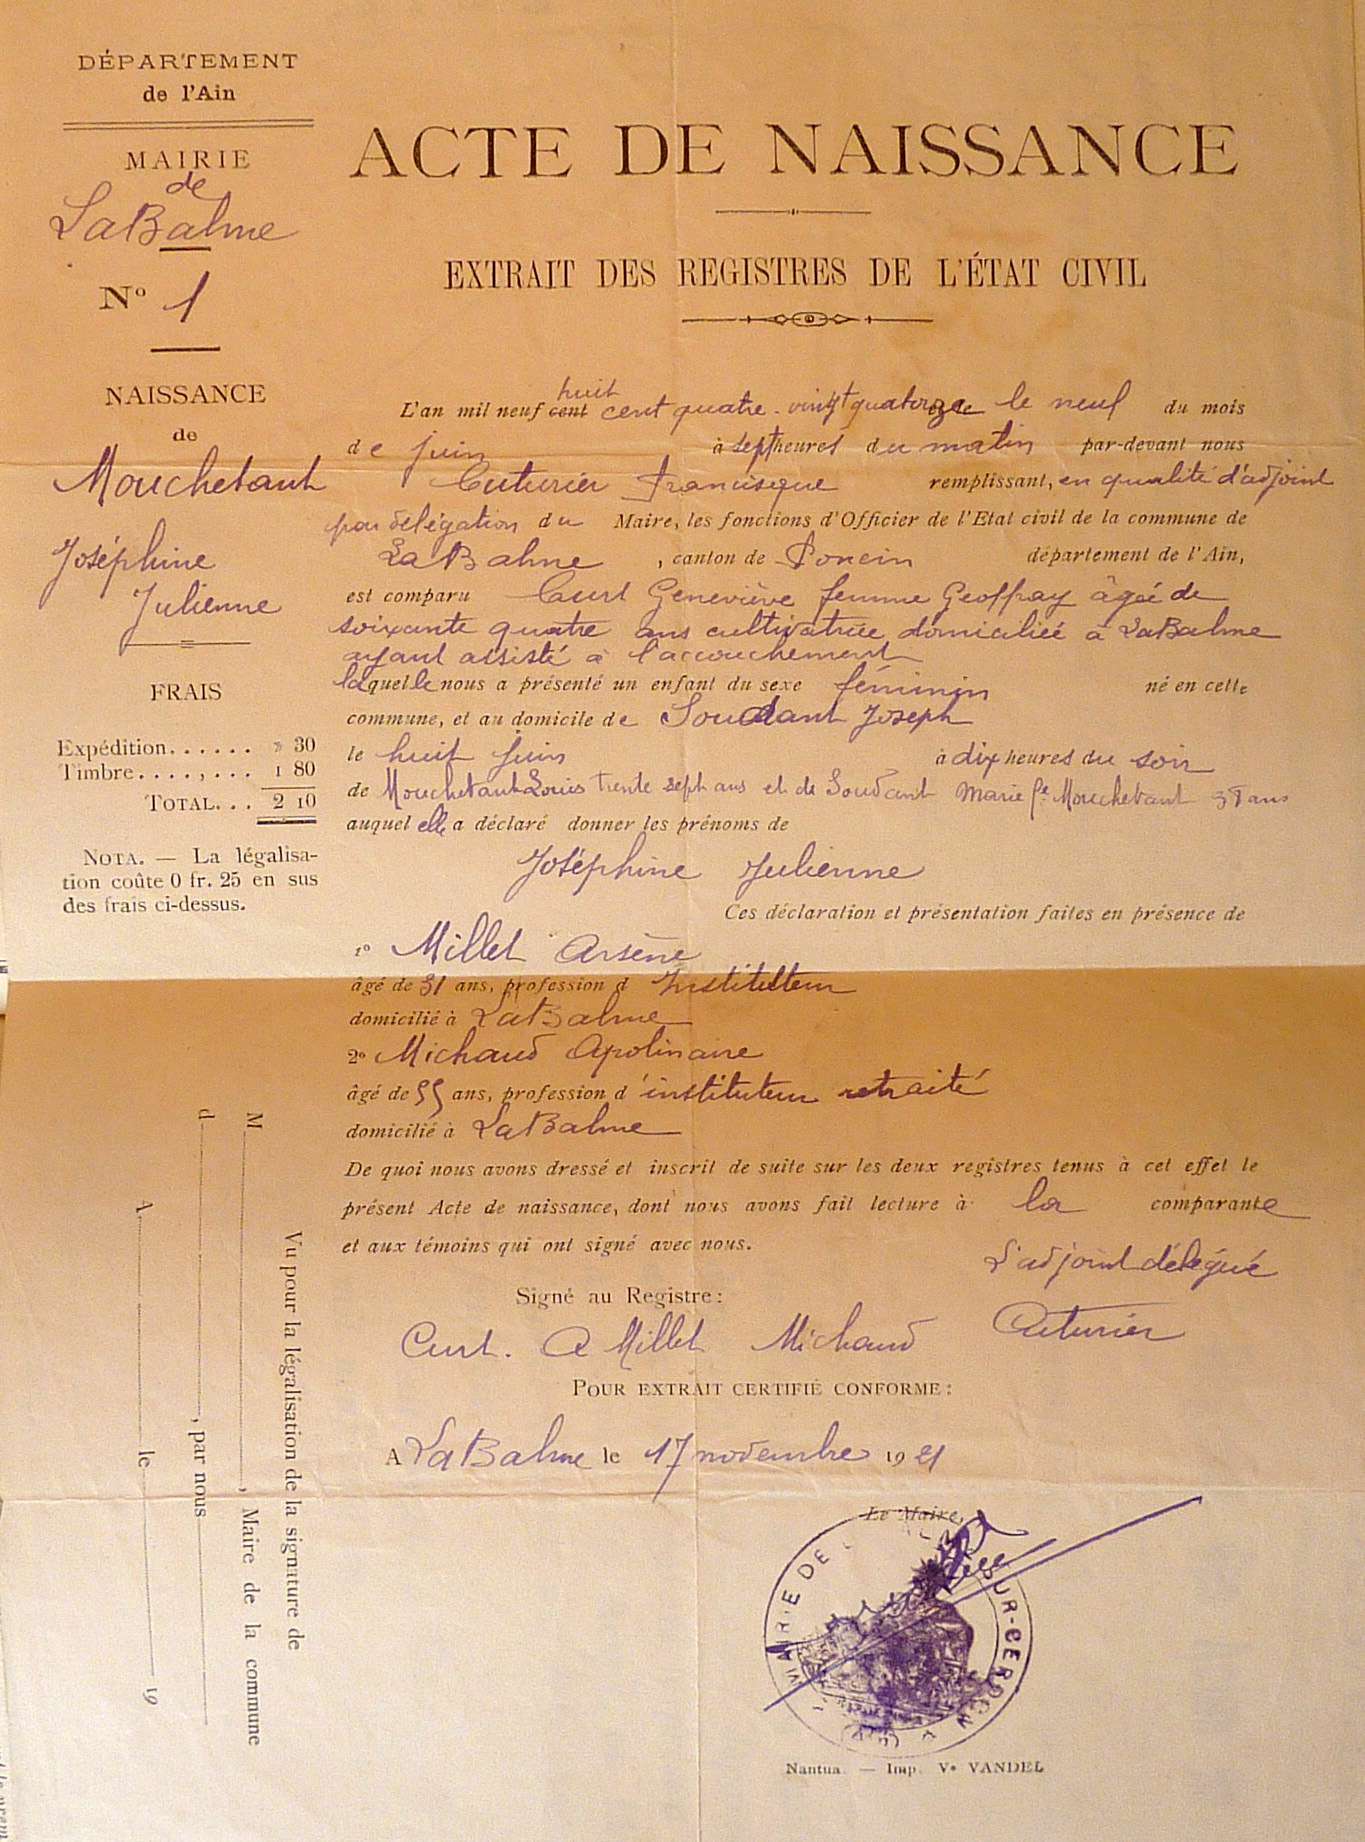 DÉPARTEMENT
de l'Ain
MAIRIE
de
LaBalme
N° 1
NAISSANCE
de
Mouchetant
Joséphine
Julienne
FRAIS
Expédition...... » 30
Timbre....,... 1 80
TOTAL... 2 10
NOTA. — La légalisa-
tion coûte 0 fr. 25 en sus
des frais ci-dessus.
ACTE DE NAISSANCE
EXTRAIT DES REGISTRES DE L'ÉTAT CIVIL
huit
L'an mil neuf cent cent quatre-vingt quatorze le neuf du mois
de juin à sept heures du matin par-devant nous
Cuturier Francisque remplissant, en qualité d'adjoint
par délégation du Maire, les fonctions d'Officier de l'Etat civil de la commune de
La Balme, canton de Poncin département de l'Ain,
est comparu Curt Geneviève femme Geoffray âgée de
soixante quatre ans cultivatrice domiciliée à LaBalme
ayant assisté à l'accouchement
laquelle nous a présenté un enfant du sexe féminin né en cette
commune, et au domicile de Soudant Joseph
le huit juin à dix heures du soir
de Mouchetant Louis trente sept ans et de Soudant Marie fe Mouchetant 38 ans
auquel elle a déclaré donner les prénoms de
Joséphine Julienne
Ces déclaration et présentation faites en présence de
1° Millet Arsène
âgé de 31 ans, profession d Instituteur
domicilié à LaBalme
2° Michaud Apolinaire
âgé de 55 ans, profession d'instituteur retraité
domicilié à LaBalme
De quoi nous avons dressé et inscrit de suite sur les deux registres tenus à cet effet le
présent Acte de naissance, dont nous avons fait lecture à la comparante
et aux témoins qui ont signé avec nous.
L'adjoint délégué
Signé au Registre:
Curt. A Millet Michaud Cuturier
POUR EXTRAIT CERTIFIÉ CONFORME:
A LaBalme le 17 novembre 1921
Le Maire,
MAIRIE DE UR-CERDON
Nantua. — Imp. Ve VANDEL
Vu pour la légalisation de la signature de
M , Maire de la commune
d , par nous
A le 19